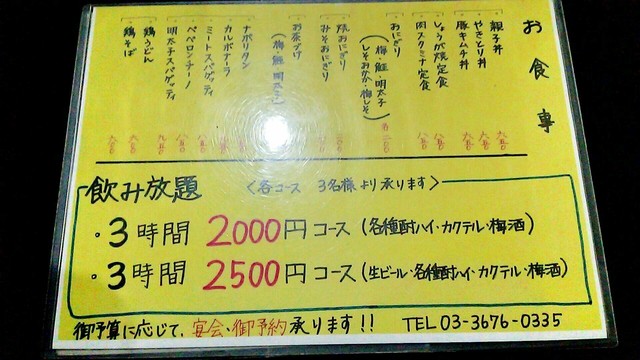 お食事
親子丼
やきとり丼
豚キムチ丼
しょうが焼定食
肉スタミナ定食
おにぎり
(梅・鮭・明太子
しそおかか・梅しそ)
焼おにぎり
みそおにぎり
お茶づけ
(梅・鮭・明太子)
ナポリタン
カルボナーラ
ミートスパゲッティ
ペペロンチーノ
明太子スパゲッティ
鶏うどん
鶏そば
飲み放題 〈各コース 3名様より承ります〉
・3時間 2000円コース(各種酎ハイ・カクテル・梅酒)
・3時間 2500円コース(生ビール・各種酎ハイ・カクテル・梅酒)
御予算に応じて、宴会・御予約承ります!! TEL 03-3676-0335